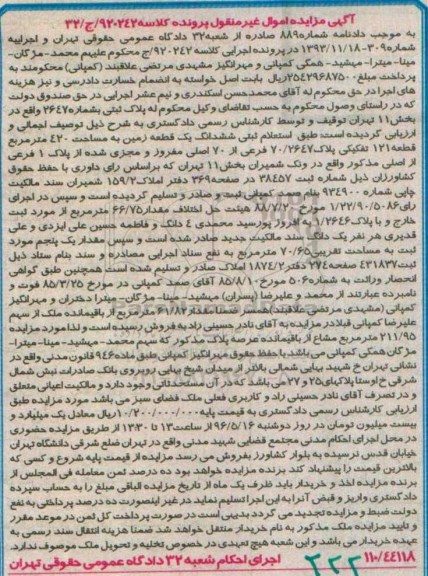 آگهی مزایده اموال غیرمنقول پرونده کلاسه۹۲۰۲۴۲/ج/۳۲
به موجب دادنامه شماره۸۸۹ صادره از شعبه۳۲ دادگاه عمومی حقوقی تهران و اجراییه
شماره۳۰۹-۱۳۹۳/۱۱/۱۸ در پرونده اجرایی کلاسه۹۲۰۲۴۲/ج محکوم علیهم محمد-مژگان-
مینا-میترا-مهشید- همگی کمپانی و مهرانگیز مشهدی مرتضی علاقبند (کمپانی) محکومند به
پرداخت مبلغ۲۵۴۲۹۶۸۷۵۰۰ریال بابت اصل خواسته به انضمام خسارت دادرسی و نیز هزینه
های اجرا در حق محکوم له آقای محمدحسن اسکندری و نیم عشر اجرایی در حق صندوق دولت
که در راستای وصول محکوم به حسب تقاضای وکیل محکوم له پلاک ثبتی بشماره۲۶۴۷ واقع در
بخش۱۱ تهران توقیف و توسط کارشناس رسمی دادگستری به شرح ذیل توصیف اجمالی و
ارزیابی گردیده است: طبق استعلام ثبتی ششدانگ یک قطعه زمین به مساحت ۴۲۰ مترمربع
قطعه۱۲۱ تفکیکی پلاک۷۰/۲۶۴۷ فرعی از ۷۰ اصلی مفروز و مجزی شده از پلاک ۱ فرعی
از اصلی مذکور واقع در ونک شمیران بخش۱۱ تهران که براساس رای داوری با حفظ حقوق
کشاورزان ذیل شماره ثبت ۳۸۴۵۷ در صفحه۳۶۹ دفتر املاک۱۵۹/۲ شمیران سند مالکیت
چاپی شماره ۹۳۴۹۰۰ بنام صمد کمپانی ثبت و صادر و تسلیم گردیده است و سپس در اجرای
رای۱/۲۲/۹۰/۵۰۸۶ مورخ ۸۸/۷/۲۰ هیئت حل اختلاف مقدار۶۶/۷۵ مترمربع از مورد ثبت
خارج و با پلاک۱/۲۶۴۶ به افروز پورسید محمدی ۴ دانگ و فاطمه حسین علی ایزدی و علی
قدیری هر نفر یک دانگ سند مالکیت جدید صادر شده است و سپس مقدار یک پنجم مورد
ثبت به مساحت تقریبی۷۰/۶۵ مترمربع به نفع ستاد اجرایی مصادره و سند بنام ستاد ذیل
ثبت۴۳۱۸۳۷ صفحه۲۷۴ دفتر۱۸۷۴/۲ املاک صادر و تسلیم شده است همچنین طبق گواهی
انحصار وراثت به شماره۵۰۶ مورخ ۸۵/۸/۱۰ آقای صمد کمپانی در مورخ ۸۵/۳/۲۵ فوت و
نامبرده عبارتند از محمد و علیرضا (پسران) مهشید- مینا- مژگان- میترا دختران و مهرانگیز
کمپانی (مشهدی مرتضی علاقبند)همسر ضمنا مقدار۶۱/۸۲ مترمربع از باقیمانده ملک از سهم
علیرضا کمپانی قبلا در مزایده به آقای نادر حسینی راد به فروش رسیده است و لذا مورد مزایده
۲۱۱/۹۵ مترمربع مشاع از باقیمانده عرصه پلاک مذکور که سهم محمد-مهشید-مینا-میترا-
مژگان همگی کمپانی می باشد با حفظ حقوق مهرانگیز کمپانی طبق ماده۹۴۶ قانون مدنی واقع در
نشانی تهران خ شهید بهایی شمالی بالاتر از میدان شیخ بهایی روبروی بانک صادرات نبش شمال
شرقی خ اوستا پلاکهای۲۵ و ۲۷ می باشد که در آن مستحدثاتی وجود دارد و مالکیت اعیانی متعلق
و در تصرف آقای نادر حسینی راد و کاربری فعلی ملک فضای سبز می باشد مورد مزایده طبق
ارزیابی کارشناس رسمی دادگستری به قیمت پایه۱۰/۲۰۰/۰۰۰/۰۰۰ریال معادل یک میلیارد و
بیست میلیون تومان در روز دوشنبه ۹۶/۵/۱۶ از ساعت۱۳ تا ۱۳:۳۰ از طریق مزایده حضوری
در محل اجرای احکام مدنی مجتمع قضایی شهید مدنی واقع در تهران ضلع شرقی دانشگاه تهران
خیابان قدس نرسیده به بلوار کشاورز بفروش می رسد مزایده از قیمت پایه شروع و کسی که
بالاترین قیمت را پیشنهاد کند برنده مزایده خواهد بود ده درصد ثمن معامله فی المجلس از
برنده مزایده اخذ و خریدار باید ظرف یک ماه از تاریخ مزایده الباقی مبلغ را به حساب سپرده
دادگستری واریز و قبض آنرا به این اجرا تسلیم نماید در غیر اینصورت ده درصد پرداختی به نفع
دولت ضبط و مزایده تجدید می گردد بدیهی است در صورت پرداخت کل ثمن در موعد مقرر
و تایید مزایده ملک مذکور به نام خریدار منتقل خواهد شد ضمنا هزینه انتقال سند رسمی به
عهده خریدار می باشد و این شعبه هیچ تعهدی در خصوص تخلیه و تحویل ملک موصوف ندارد.
۱۱۰/۴۴۱۱۸ اجرای احکام شعبه ۳۲ دادگاه عمومی حقوقی تهران
۲۲۲